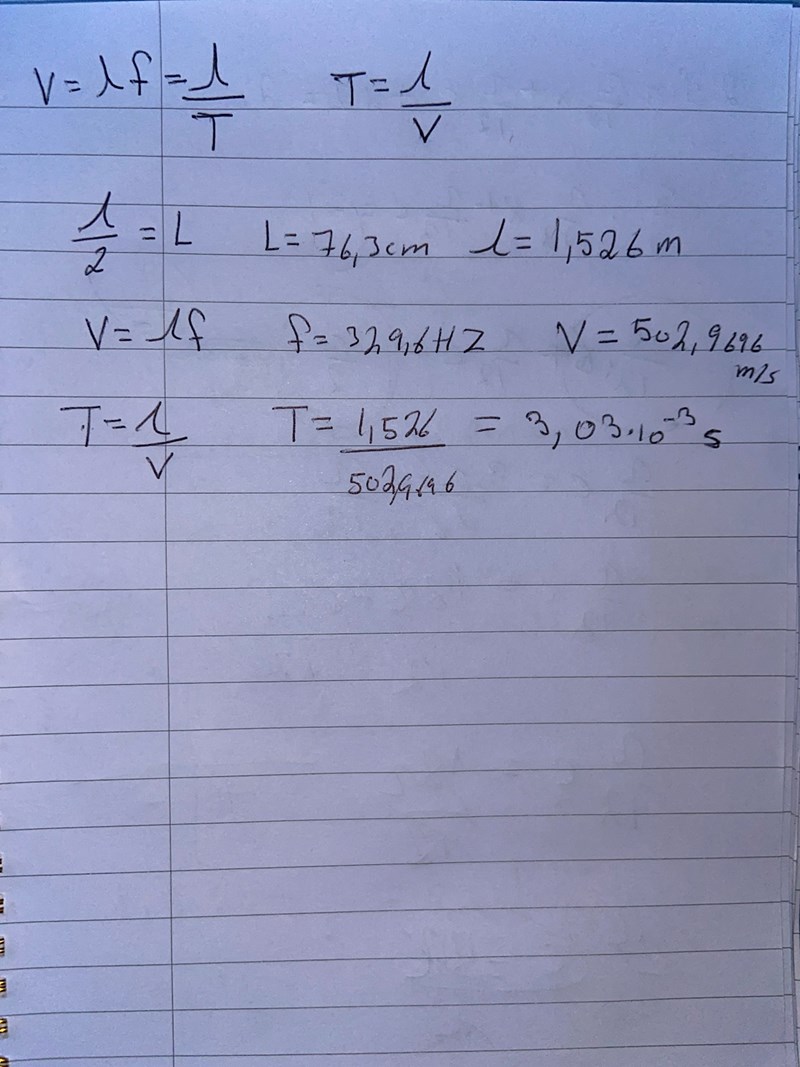 V = λf = λ/T T = λ/V
λ/2 = L L = 76,3cm λ = 1,526 m
V = λf f = 329,6HZ V = 502,9696 m/s
T = λ/V T = 1,526/502,9696 = 3,03·10⁻³ s